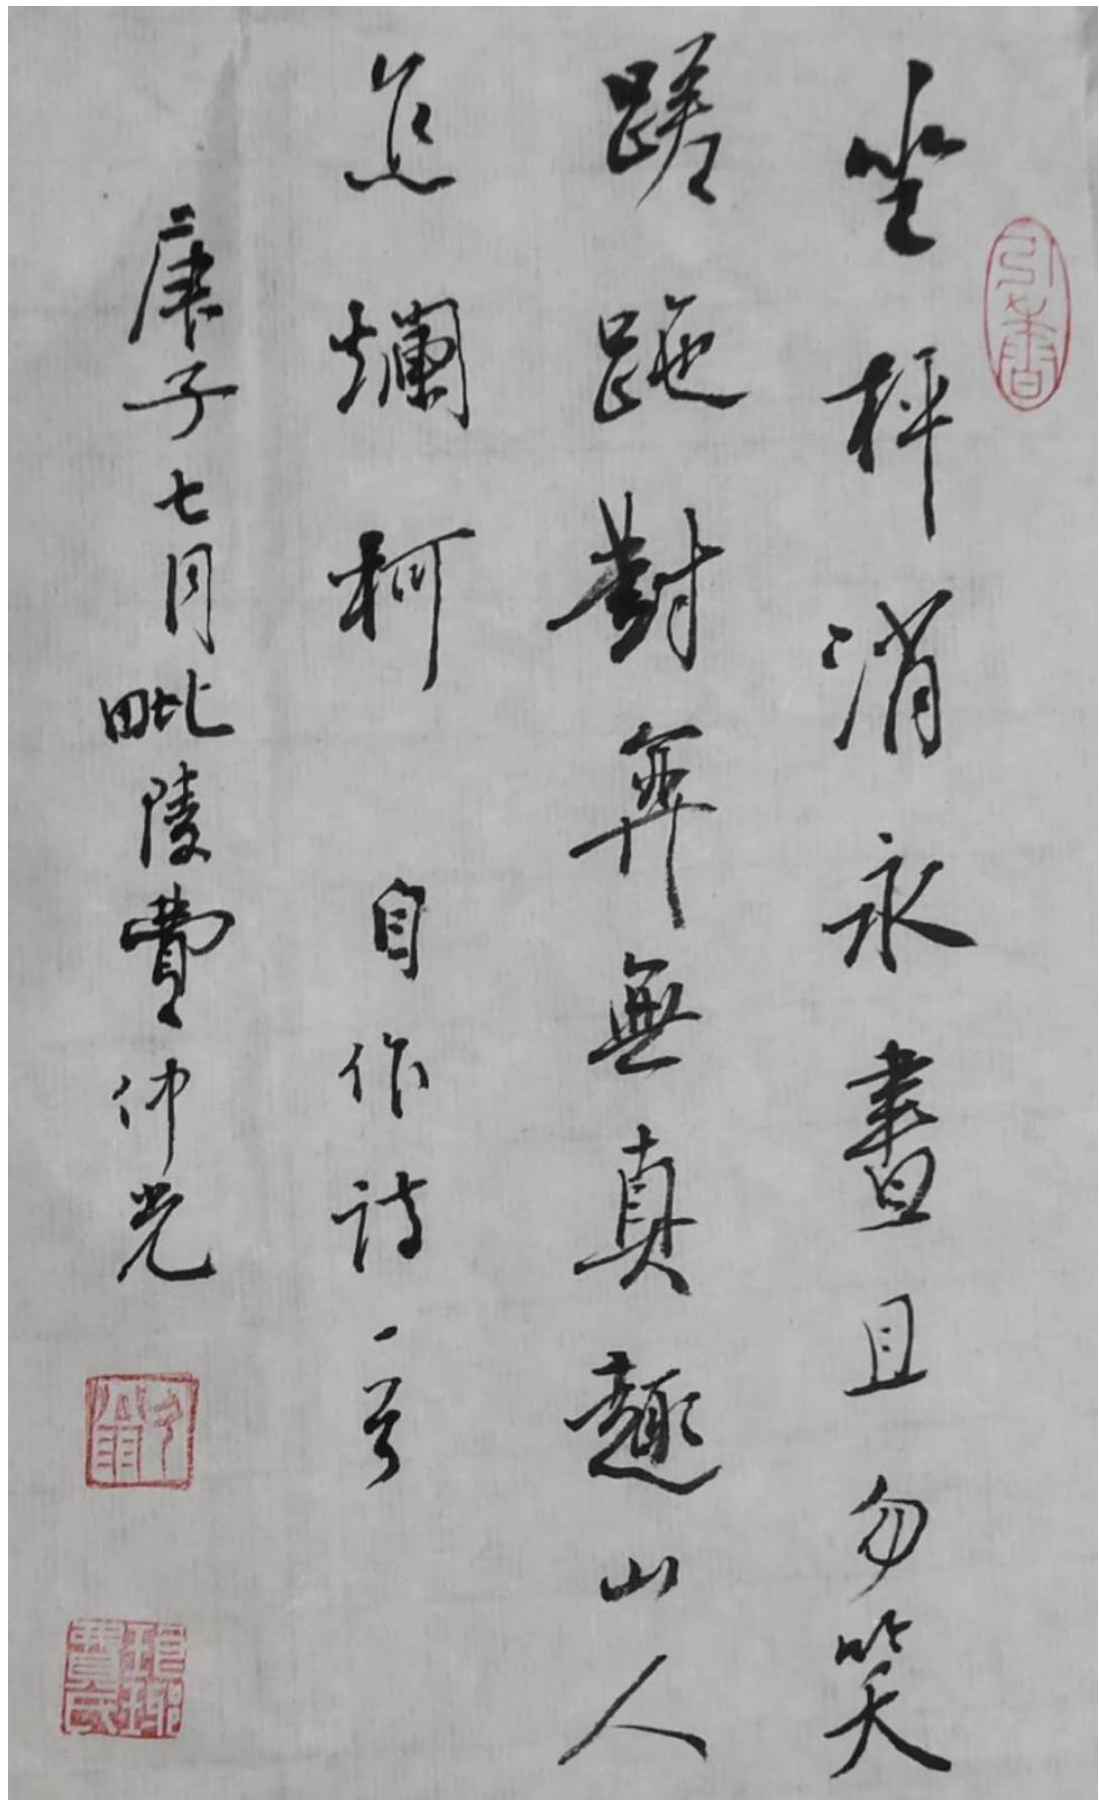 坐枰消永晝且勿笑
蹉跎對弈無真趣山人
怎爛柯 自作詩一首
庚子七月毗陵費仲光
琅琊費氏